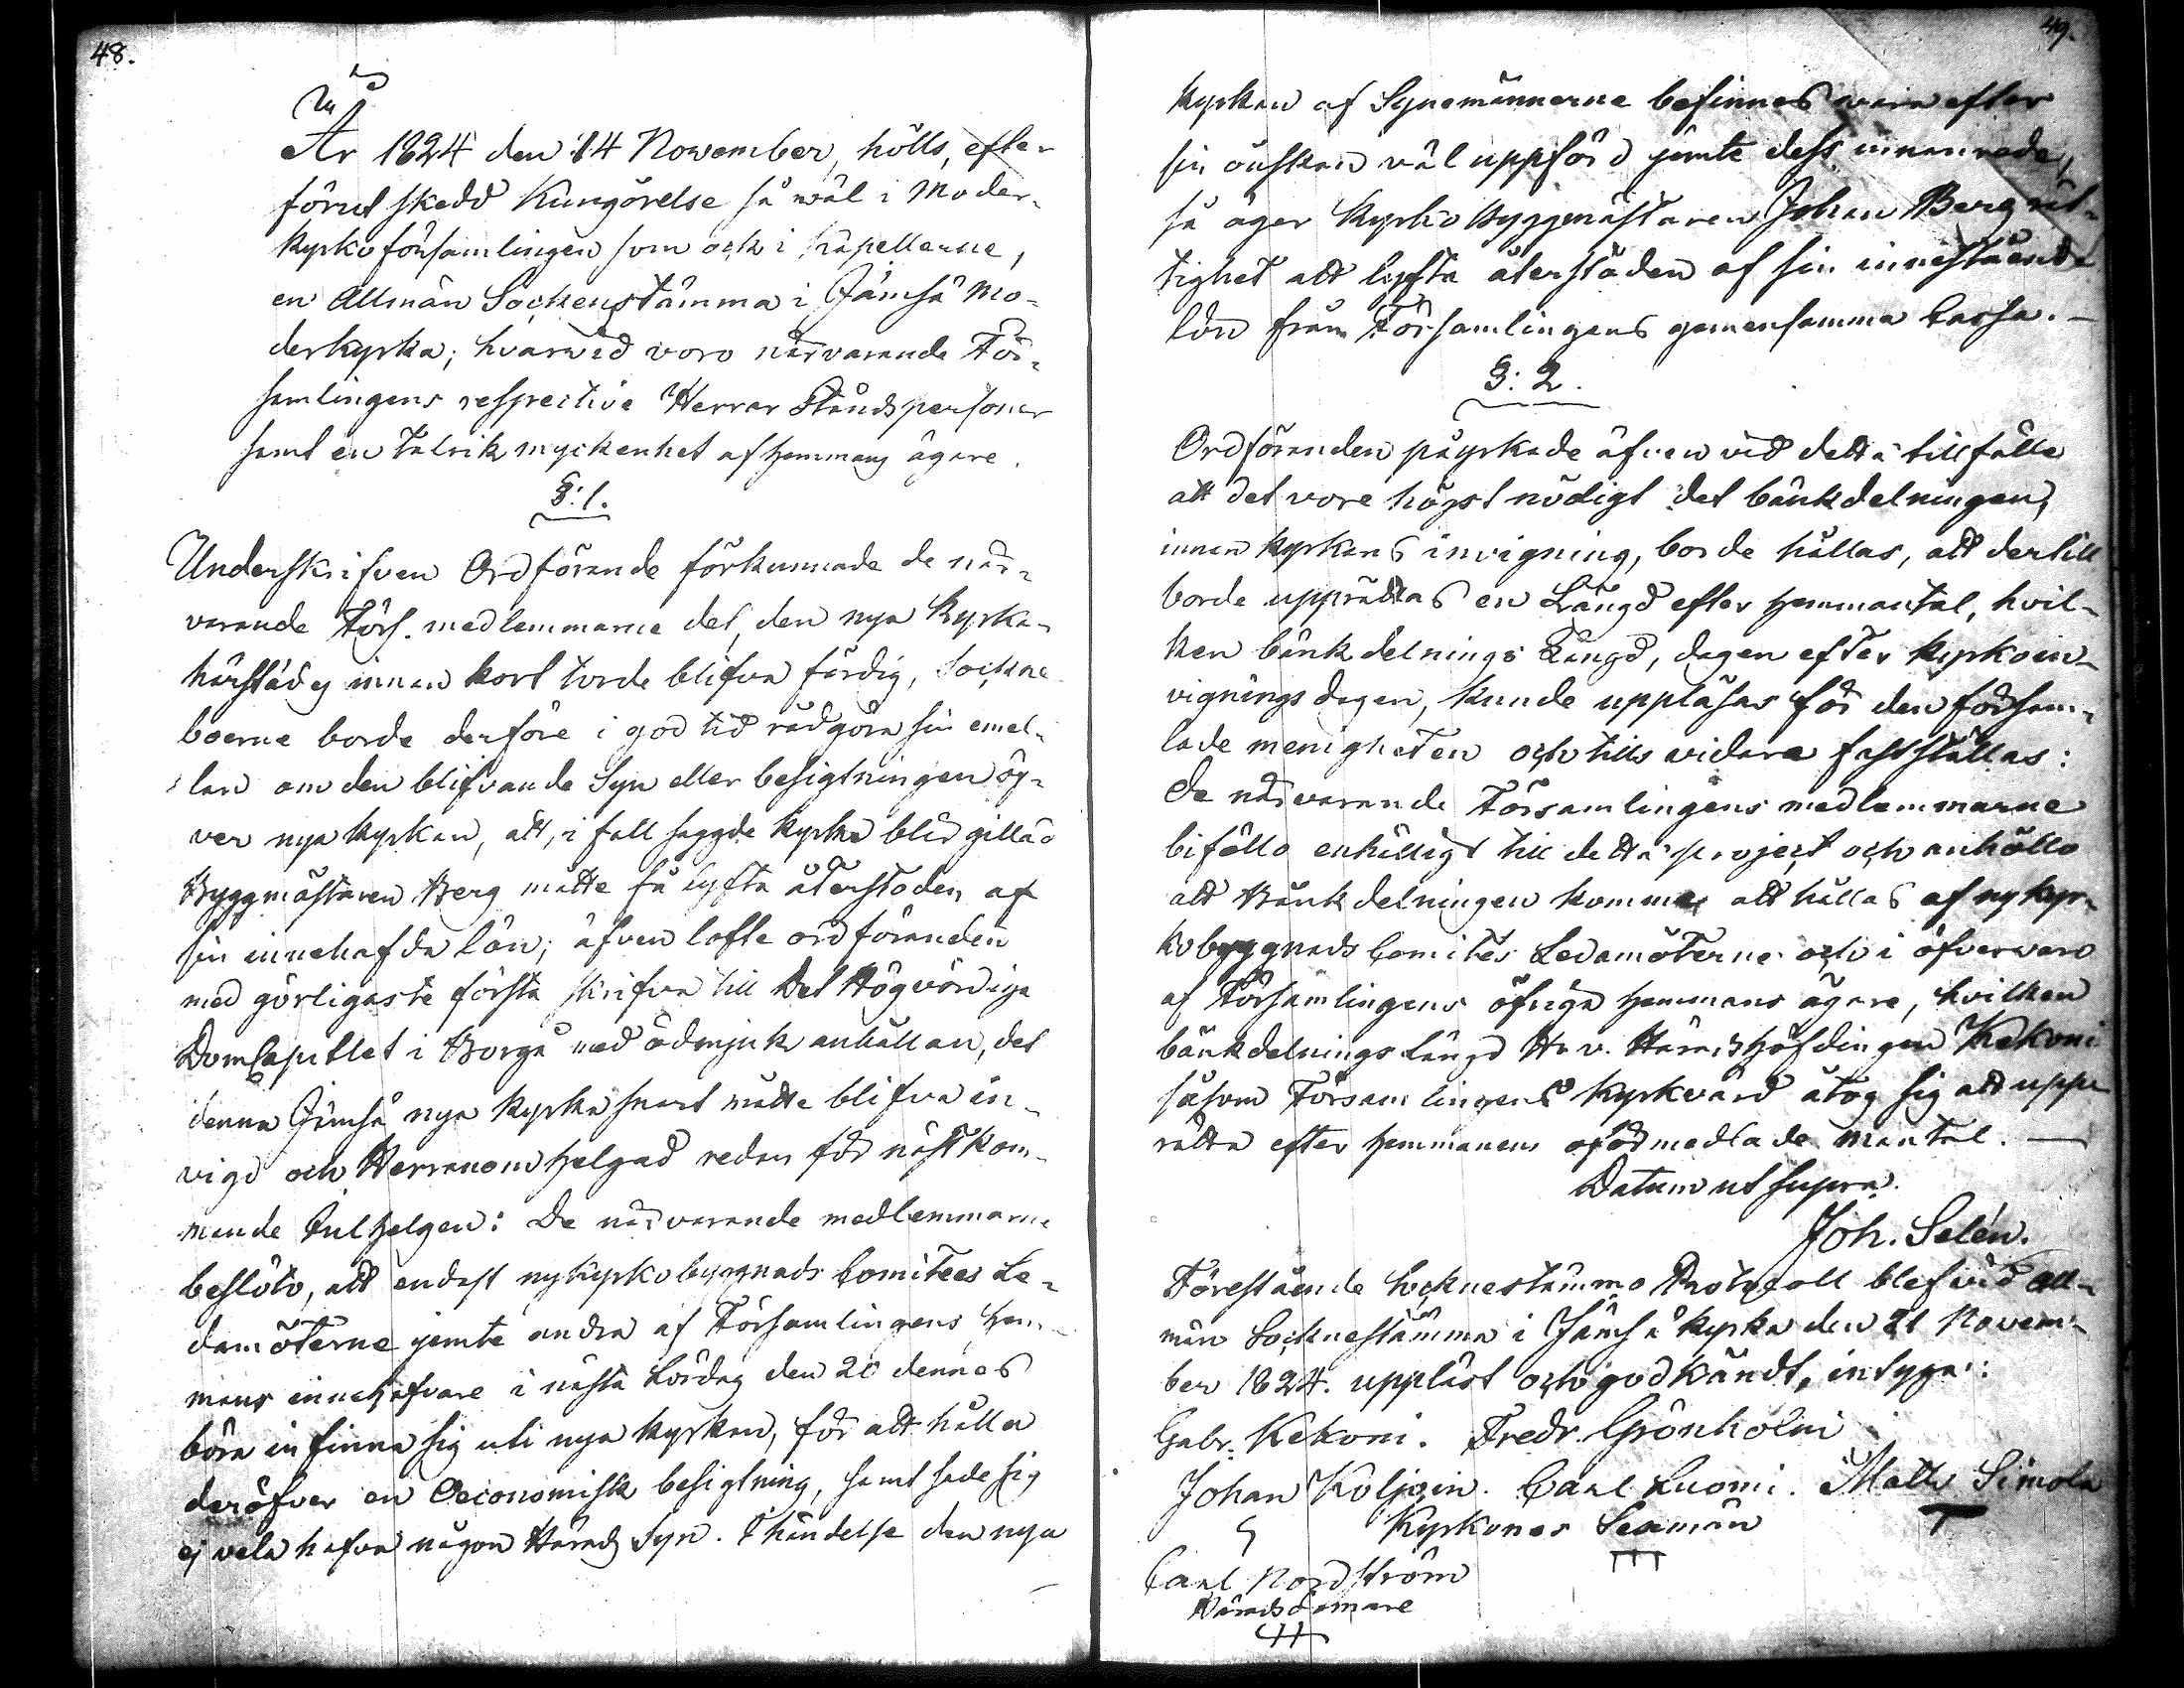 48.
År 1824 den 14 November, hölls, efter
förut skedd Kungörelse så wäl i Moder-
kyrko församlingen som ock i Kapellerne,
en Allmän Sockenstämma i Jämsä Mo-
derkyrka; hvarwid voro närvarande För-
samlingens respective Herrar Ståndspersoner
samt en talrik myckenhet af Hemmans ägare.
§: 1.
Underskrifven Ordförande förkunnade de när-
varande Förs. medlemmarne det, den nya Kyrka
härstädes innan kort torde blifva färdig, Sockne
boerne borde derföre i god tid rådgöra sin emel-
lan om den blifvande Syn eller besigtningen öf-
ver nya kyrkan, att, i fall sagde kyrka blir gillad
Byggmästaren Berg måtte få lyfta återstoden af
sin innehafda lön; äfven lofte ordföranden
med görligaste första skrifva till Det Högvördiga
DomCapitlet i Borgå med ödmjuk anhållan, det
denna Jämsä nya kyrka snart måtte blifva in-
vigd och Herranom helgad redan för nästkom-
mande Julhelgen: De närvarande medlemmarne
beslöto, att endast nykyrkobyggnads Comitees Le-
damöterne jemte andra af Församlingens Hem-
mans innehafvare i nästa Lördag den 20 dennes
böra infinna sig uti nya kyrkan, för att hålla
deröfver en Oeconomisk besigtning, samt sade sig
ej vela hafva någon Härads Syn. I händelse den nya
49.
kyrkan af Synemännerne befinnes vara efter
sin önskan väl uppförd jemte dess innanrede,
så äger Kyrko Byggmästaren Johan Berg rät-
tighet att lyfta återstoden af sin innestående
lön från Församlingens gemensamma Cassa.—
§: 2.
Ordföranden påyrkade äfven vid detta tillfälle
att det vore högst nödigt det bänkdelningen,
innan kyrkans invigning, borde hållas, att dertill
borde upprättas en Längd efter hemmantal, hvil-
ken bänkdelnings Längd, dagen efter kyrkoin-
vignings dagen, kunde uppläsas för den försam-
lade menigheten och tills vidare fastställas:
De närvarande Församlingens medlemmarne
biföllo enhälligt till detta project och anhöllo
att Bänkdelningen kommer att hållas af nykyr-
kobyggnads Comités Ledamöterne och i öfvervaro
af Församlingens öfriga hemmans ägare, hvilken
bänkdelnings längd Hr v. Häradshöfdingen Kekoni
såsom Församlingens kyrkvärd åtog sig att upp-
rätta efter hemmanens oförmedlade mantal.—
Datum ut supra.
Joh. Selén.
Förestående Socknestämmo Protocoll blef vid all-
män Socknestämma i Jämsä kyrka den 21 Novem-
ber 1824. uppläst och godkändt, intyga:
Gabr. Kekoni. Fredr. Grönholm
Johan Koljoin. Carl Luomi. Matts Simola
Kyrkoner Seemän
Carl Nordström
Häradsdomare